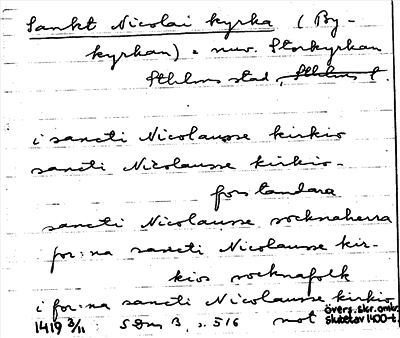 Sankt Nicolai kyrka (By-
kyrkan) = nuv. Storkyrkan
Sthlms stad, Sthlms l.
i sancti Nicolausse kirkio
sancti Nicolausse kirkio-
forstandara
sancti Nicolausse socknaherra
for:na sancti Nicolausse kir-
kios socknafolk
i for:na sancti Nicolausse kirkio
1419 3/11 SDns 3, s. 516 not övers. skr. omkr.
slutet av 1400-t.